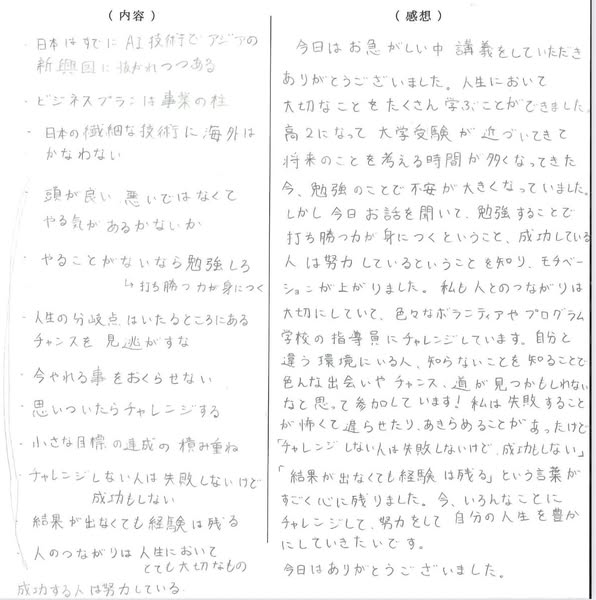 （内容）
・日本はすでにAI技術でアジアの
新興国に抜かれつつある
・ビジネスプランは事業の柱
・日本の繊細な技術に海外は
かなわない
・頭が良い悪いではなくて
やる気があるかないか
・やることがないなら勉強しろ
↳打ち勝つ力が身につく
・人生の分岐点はいたるところにある
チャンスを見逃がすな
・今やれる事をおくらせない
・思いついたらチャレンジする
・小さな目標の達成の積み重ね
・チャレンジしない人は失敗しないけど
成功もしない
・結果が出なくても経験は残る
・人のつながりは人生において
とても大切なもの
成功する人は努力している。
（感想）
今日はお急がしい中講義をしていただき
ありがとうございました。人生において
大切なことをたくさん学ぶことができました。
高2になって大学受験が近づいてきて
将来のことを考える時間が多くなってきた
今、勉強のことで不安が大きくなっていました。
しかし今日お話を聞いて、勉強することで
打ち勝つ力が身につくということ、成功している
人は努力しているということを知り、モチベー
ションが上がりました。私も人とのつながりは
大切にしていて、色々なボランティアやプログラム
学校の指導員にチャレンジしています。自分と
違う環境にいる人、知らないことを知ることで
色んな出会いやチャンス、道が見つかもしれない
なと思って参加しています！私は失敗すること
が怖くて遅らせたり、あきらめることがあったけど
「チャレンジしない人は失敗しないけど、成功もしない」
「結果が出なくても経験は残る」という言葉が
すごく心に残りました。今、いろんなことに
チャレンジして、努力をして自分の人生を豊か
にしていきたいです。
今日はありがとうございました。